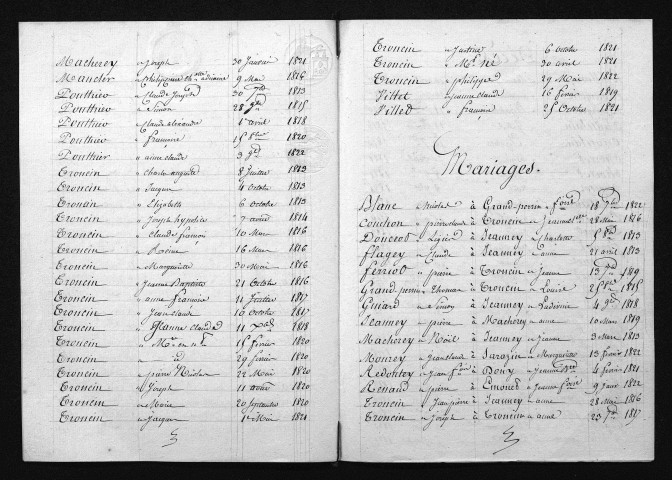 Macherey " Joseph 30 Janvier 1821
Mauclor " philippine 9 Mai 1816
Ponthier " Claude Joseph 30 7bre 1813
Ponthier " Simon 28 9bre 1815
Ponthier " Claude 1er avril 1818
Ponthier " françoise 15 8bre 1820
Ponthier " anne claude 3 1822
Troncin " Charle auguste 8 1813
Troncin " Jacques 4 Octobre 1813
Troncin " Elizabeth 6 Octobre 1813
Troncin " Joseph hypolite 7 1814
Troncin " Claude françois 10 Mars 1816
Troncin " 16 Mars 1816
Troncin " Marguerite 30 Mai 1816
Troncin " Jeanne Baptiste 21 Octobre 1816
Troncin " anne françoise 11 février 1817
Troncin " Jean claude 10 Octobre 1817
Troncin " Jeanne claude 11 Xbre 1818
Troncin " Mort né 15 février 1820
Troncin " id 29 février 1820
Troncin " pierre Nicolas 22 Mai 1820
Troncin " Joseph 11 1820
Troncin " Marie 20 Septembre 1820
Troncin " Jacques 1er Mai 1821
Troncin " Justine 6 Octobre 1821
Troncin " Mort né 30 avril 1821
Troncin " philippe 29 Mai 1822
Villet " Jeanne claude 16 février 1819
Villet " françois 25 Octobre 1821
Mariages.
Blanc " Nicolas à Grand-perrin " foise 18 7bre 1822
Couchon " à Troncin " 28 Mai 1816
" à Jeauney " Charlotte 5 8bre 1813
Flagey " Claude à Jeauney " anne 21 avril 1813
Ferriot " pierre à Troncin " Jeanne 13 1819
Grand-perrin " Thomas à Troncin " Louise 25 8bre 1815
Guiard " Simon à Jeauney " Ludivine 4 9bre 1818
Jeauney " pierre à Macherey " anne 10 Mars 1819
Macherey " Noël à Jeauney " Jeanne 3 Mars 1813
Monrey " Jean claude à Sarazin " Marguerite 13 février 1822
Redoutey " Jean à " Jeanne 4 février 1821
Renaud " pierre à " Jeanne 9 1822
Troncin " Jean pierre à Jeauney " anne 28 Mai 1816
Troncin " Joseph à Troncin " anne 23 1817